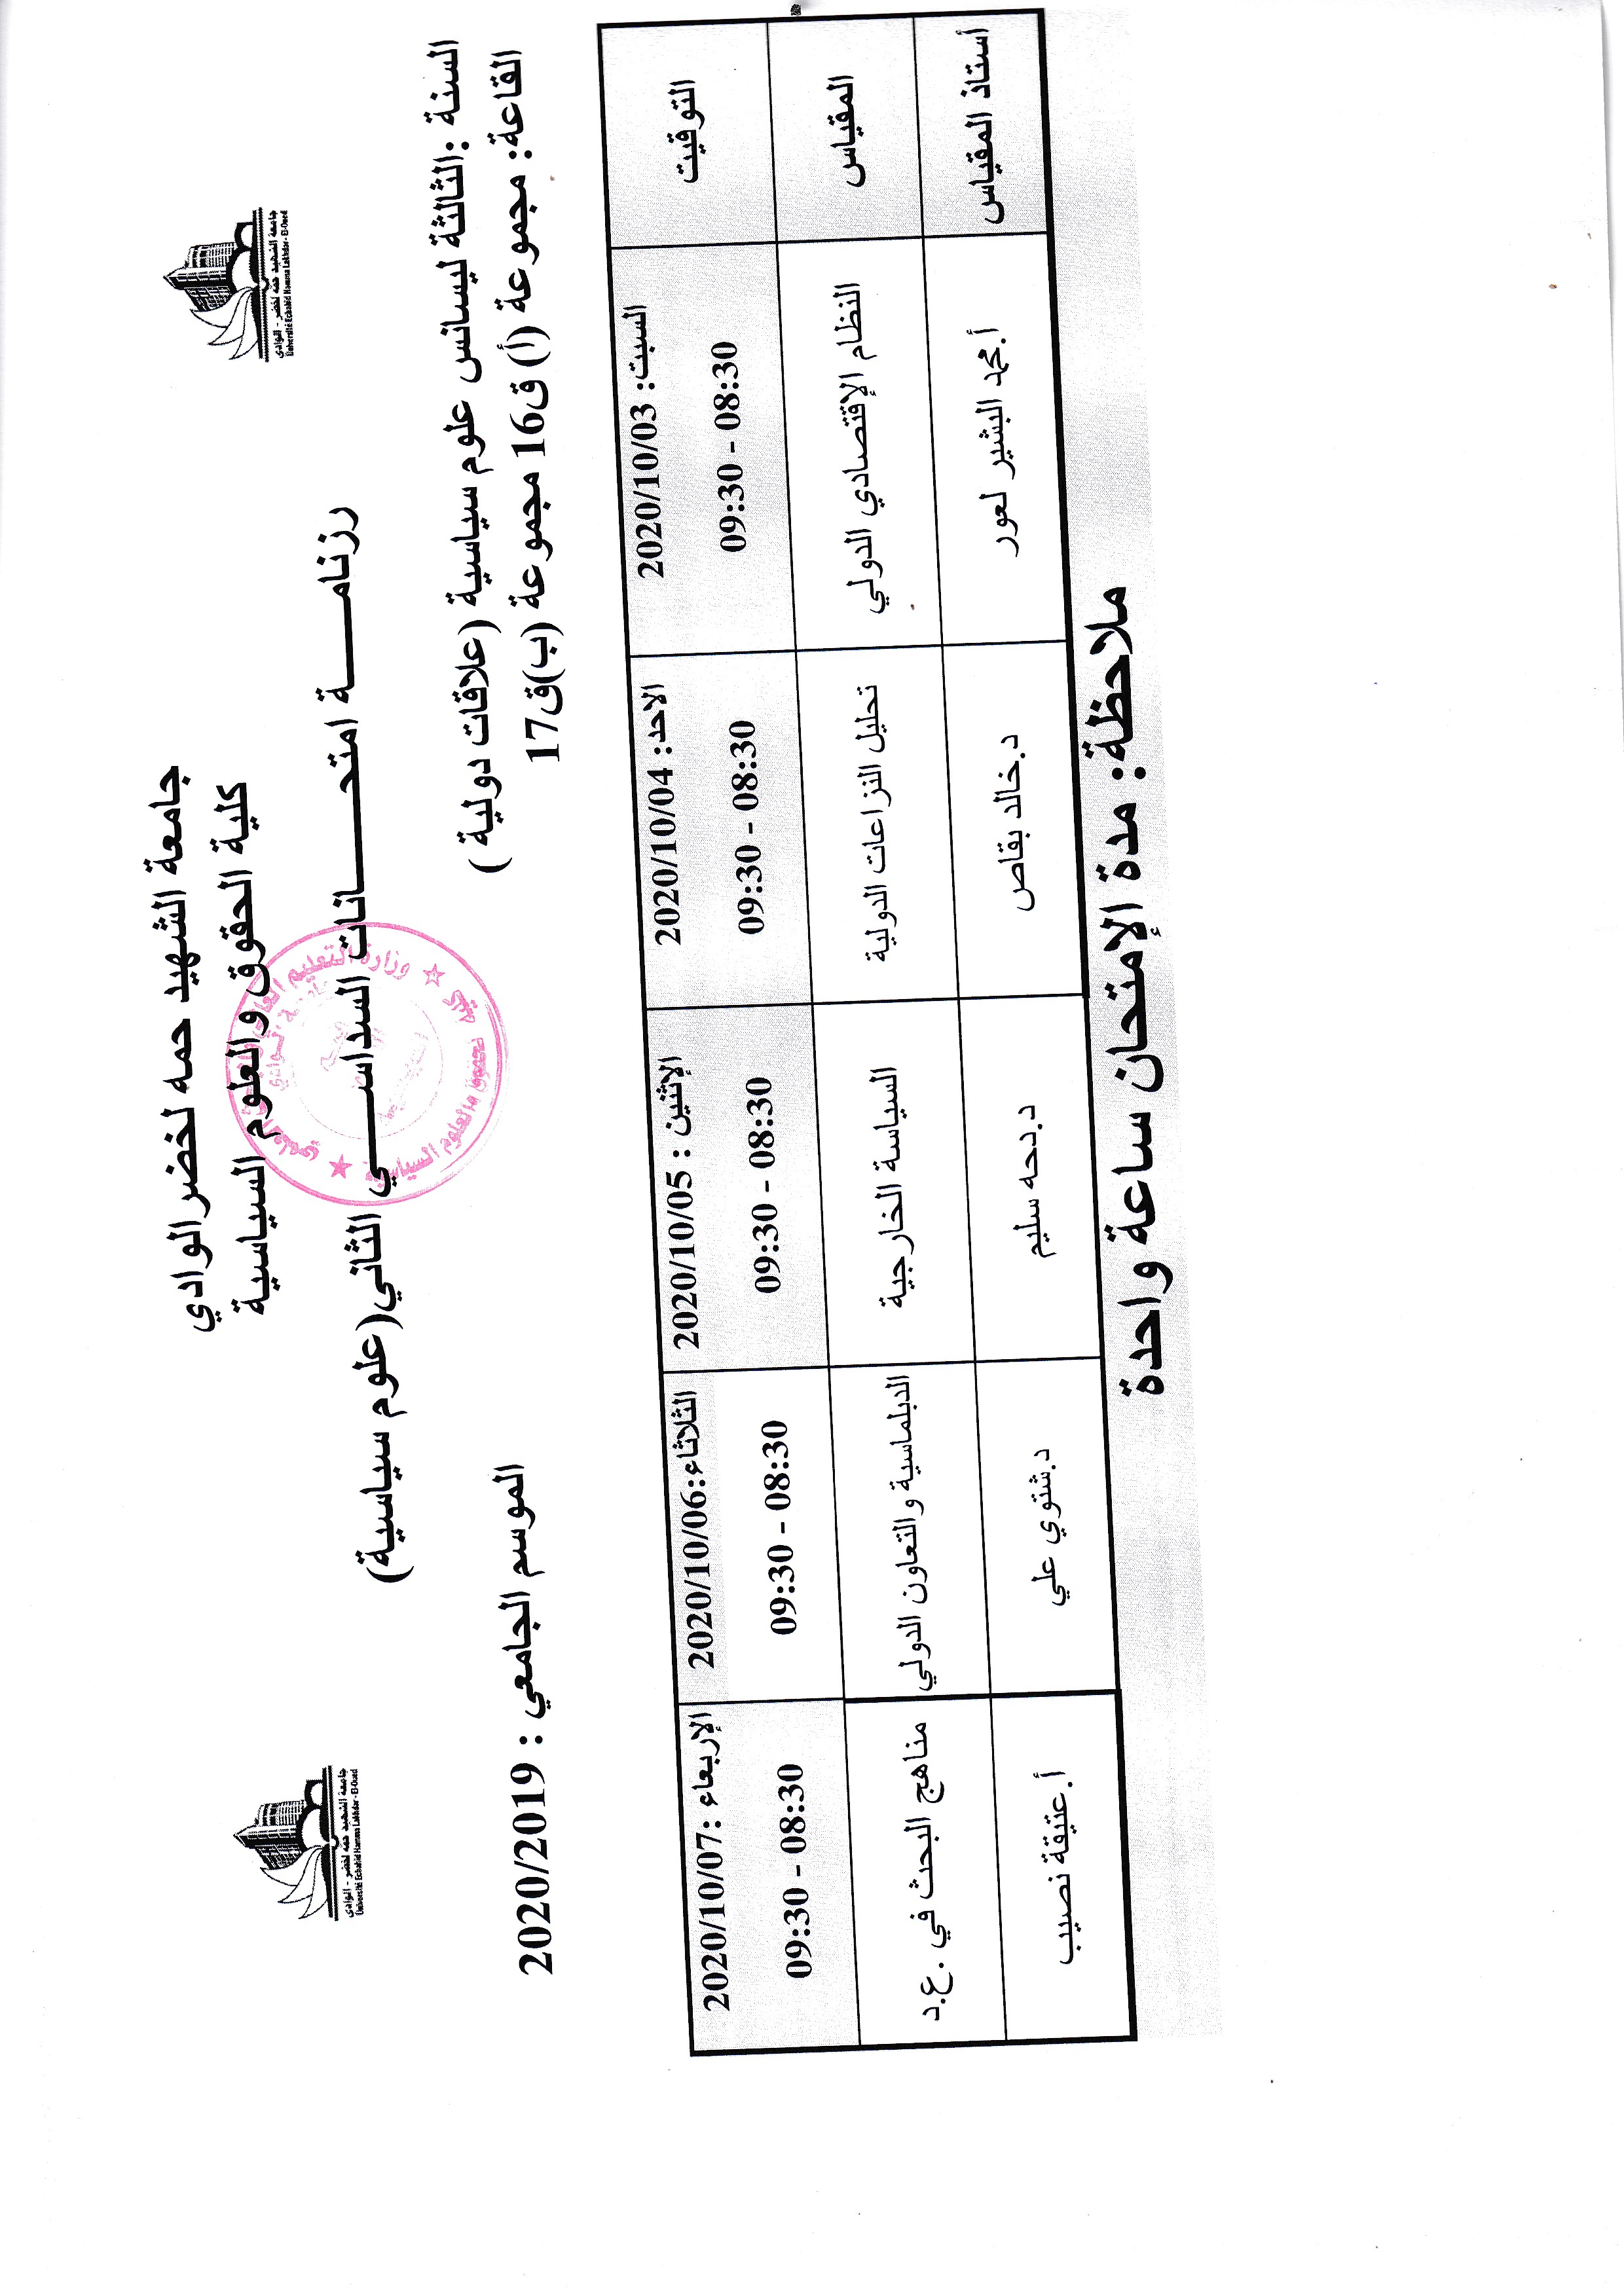 جامعة الشهيد حمه لخضر الوادي
كلية الحقوق والعلوم السياسية
رزنامـــــة امتحـــــانات السداســـي الثاني(علوم سياسية)
السنة :الثالثة ليسانس علوم سياسية (علاقات دولية )
القاعة: مجموعة (أ) ق16 مجموعة (ب)ق17
الموسم الجامعي : 2020/2019
جامعة الشهيد حمه لخضر - الوادي
Université Echahid Hamma Lakhdar - El-Oued
جامعة الشهيد حمه لخضر - الوادي
Université Echahid Hamma Lakhdar - El-Oued
التوقيت
السبت: 2020/10/03
09:30 - 08:30
الاحد: 2020/10/04
09:30 - 08:30
الإثنين : 2020/10/05
09:30 - 08:30
الثلاثاء:2020/10/06
09:30 - 08:30
الإربعاء :2020/10/07
09:30 - 08:30
المقياس
النظام الإقتصادي الدولي
تحليل النزاعات الدولية
السياسة الخارجية
الدبلماسية والتعاون الدولي
مناهج البحث في .ع.د
أستاذ المقياس
أ.محمد البشير لعور
د.خالد بقاص
د.دحه سليم
د.شتوي علي
أ.عتيقة نصيب
ملاحظة: مدة الإمتحان ساعة واحدة
وزارة التعليم العالي